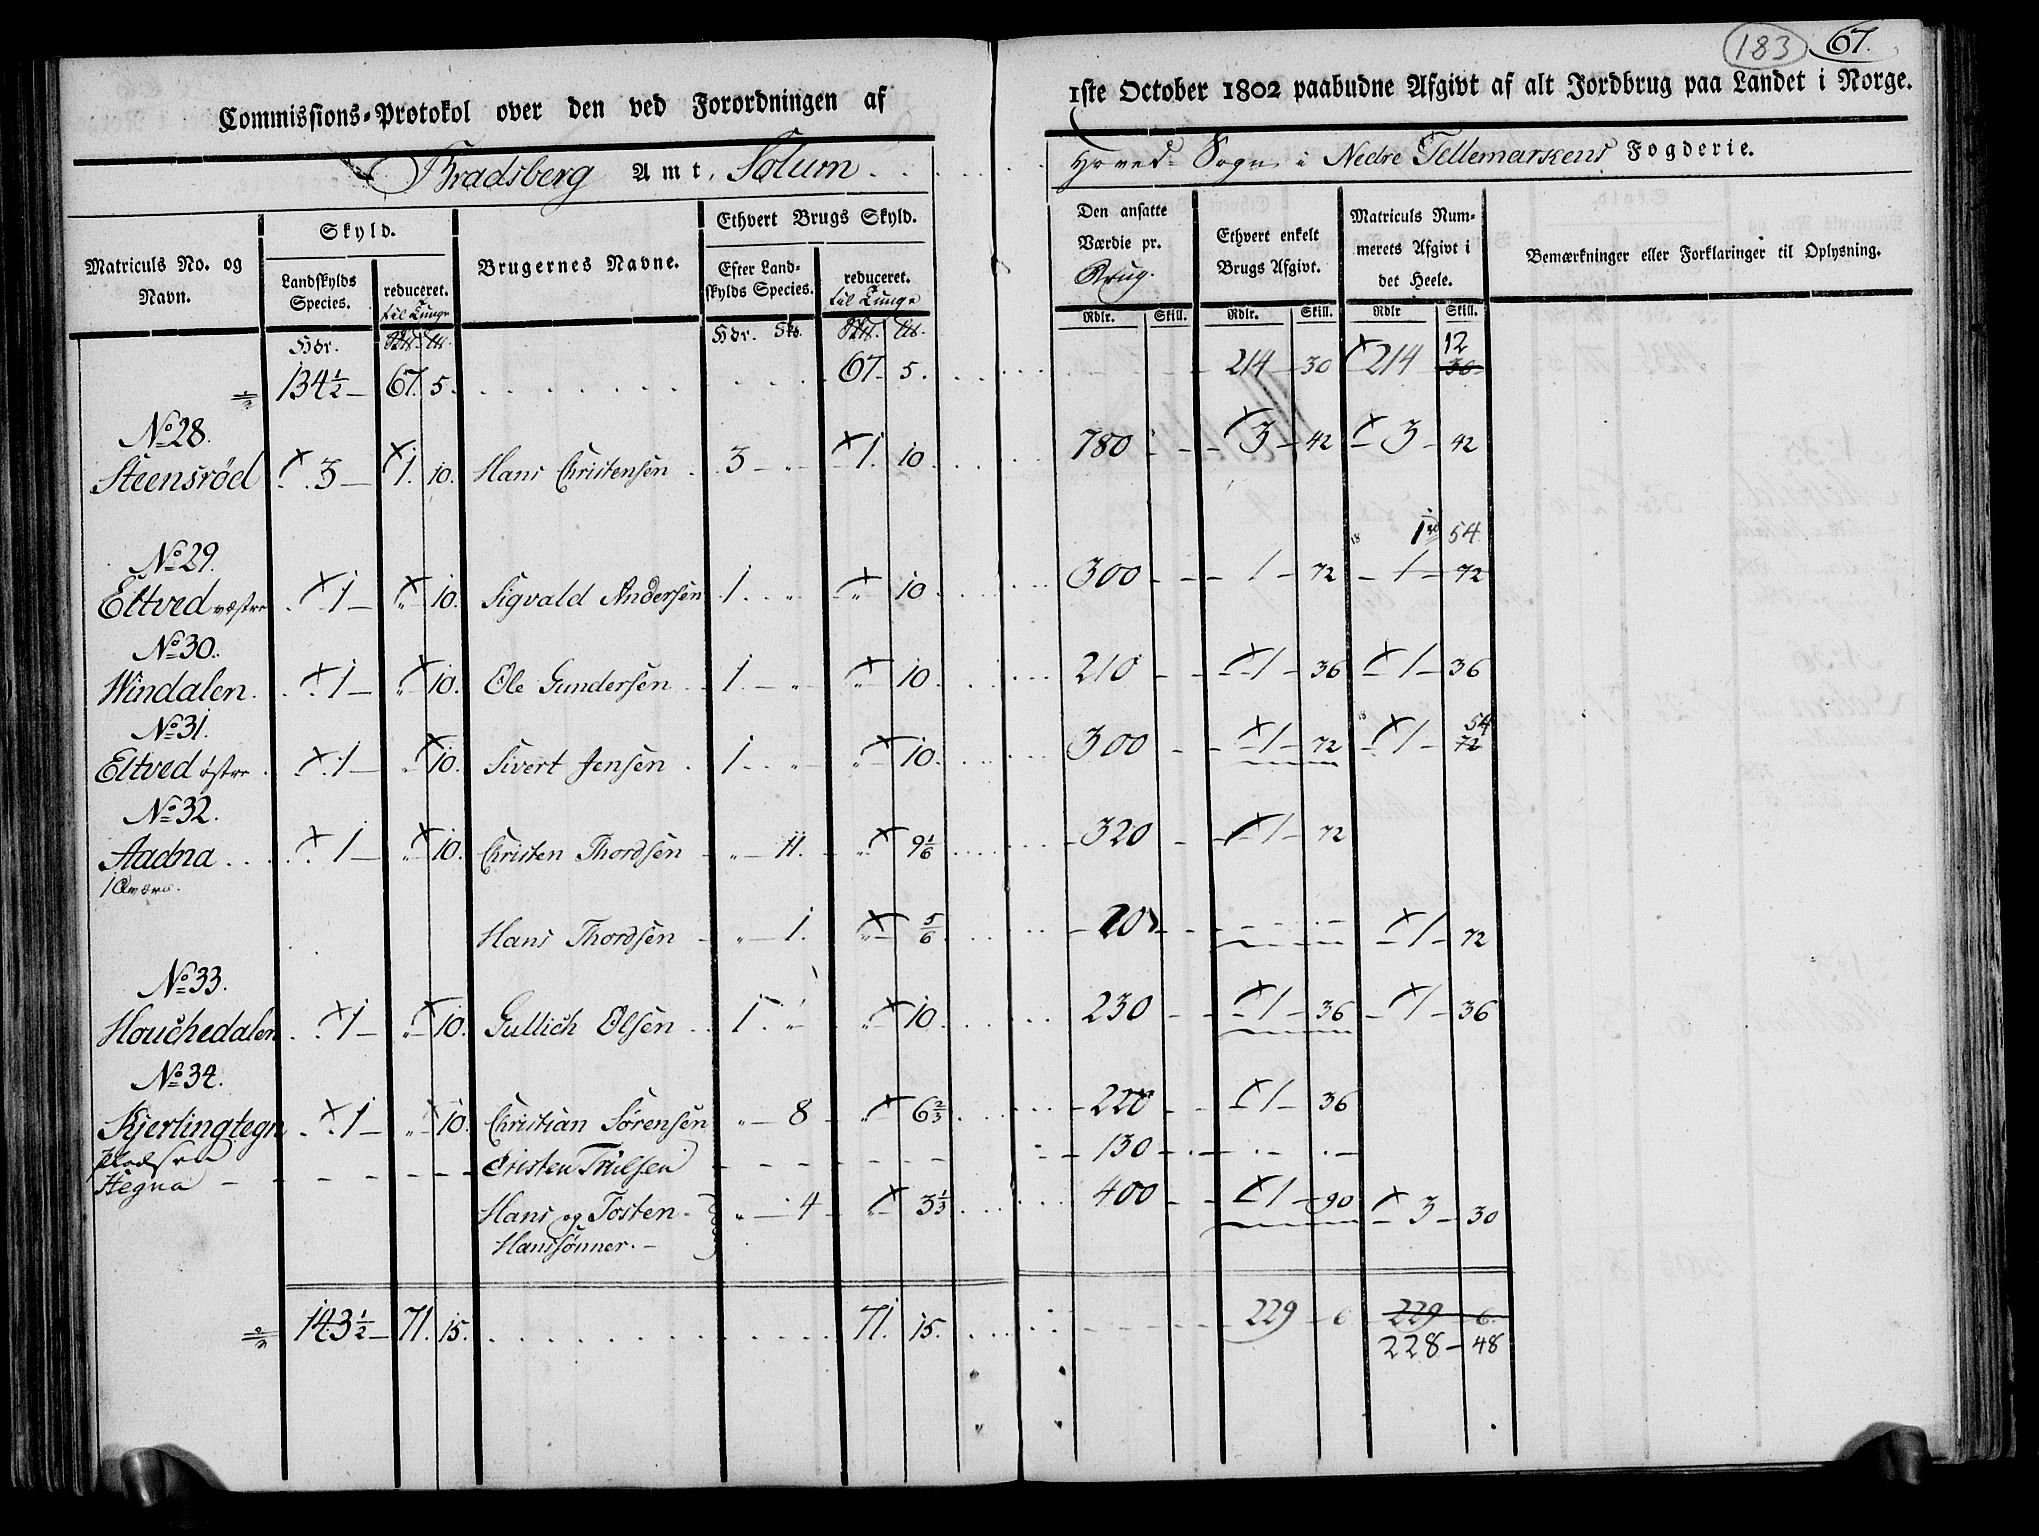 183 67.
Commissions-Protokol over den ved Forordningen af 1ste October 1802 paabudne Afgivt af alt Jordbrug paa Landet i Norge.
Bradsberg Amt, Solum Hoved-Sogn i Nedre Tellemarkens Fogderie.
Matriculs No. og Navn. Skyld. Landskylds Species. reduceret. til Tunge Brugernes Navne. Ethvert Brugs Skyld. Efter Landskylds Species. reduceret. til Tunge Den ansatte Værdie pr. Brug. Ethvert enkelt Brugs Afgivt. Matriculs Nummerets Afgivt i det Heele. Bemærkninger eller Forklaringer til Oplysning.
Hdr. Hdr. Rdlr. Skill. Rdlr. Skill. Rdlr Skill.
12
134½ 67. 5. 67. 5. 214 30 214 30
No 28.
Steensrød 3 1. 10. Hans Christensen 3 1. 10 780 3 42 3 42
1 54
No 29.
Eltved væstre 1 10. Sigvald Andersen 1 10 300 1 72 1 72
No 30.
Windalen 1 10. Ole Gundersen 1 10 210 1 36 1 36
No 31.
54
Eltved østre 1 10. Sivert Jensen 1 10. 300 1 72 1 72
No 32.
Aadna 1 10. Christen Thordsen 11. 9 1/6 320 1 72
1 Qværn.
Hans Thordsen 1. 5/6 20 1 72
No 33.
Houchedalen 1 10. Gullich Olsen 1 10 230 1 36 1 36
No 34.
Kjerlingtegn 1 10. Christian Sørensen 8 6 2/3 220 1 36
Cristen Trulsen 130
Hegna
Hans og Tosten 4 3 1/3 400 1 90 3 30
Hanssønner.
143½ 71. 15. 71. 15. 229 6 229 6.
228 48